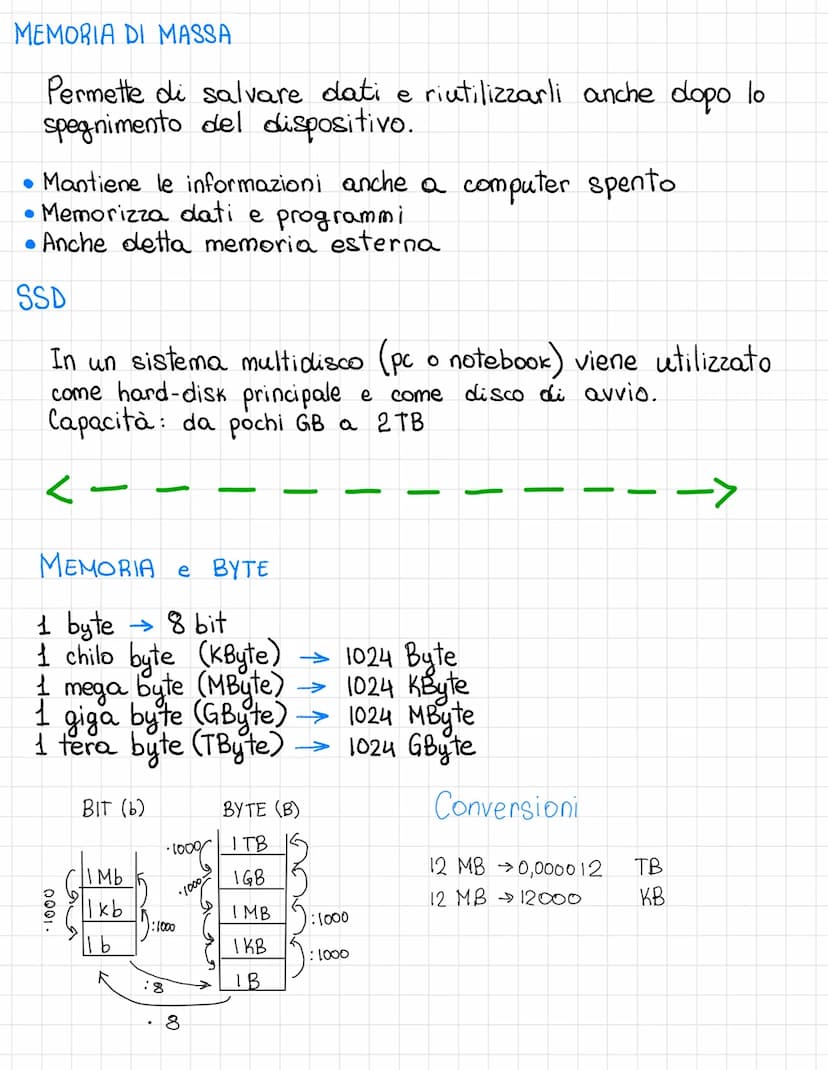 MEMORIA DI MASSA
Permette di salvare dati e riutilizzarli anche dopo lo
spegnimento del dispositivo.
• Mantiene le informazioni anche a computer spento
• Memorizza dati e programmi
• Anche detta memoria esterna
SSD
In un sistema multidisco (pc o notebook) viene utilizzato
come hard-disk principale e come disco di avvio.
Capacità: da pochi GB a 2TB
MEMORIA e BYTE
1 byte → 8 bit
1 chilo byte (KByte) → 1024 Byte
1 mega byte (MByte) → 1024 KByte
1 giga byte (GByte) → 1024 MByte
1 tera byte (TByte) → 1024 GByte
BIT (b)
·1000
1 Mb
1 kb
1 b
:1000
:8
· 8
BYTE (B)
·1000
·1000
1 TB
1 GB
1 MB
1 KB
1 B
:1000
:1000
Conversioni
12 MB → 0,000012 TB
12 MB → 12000 KB